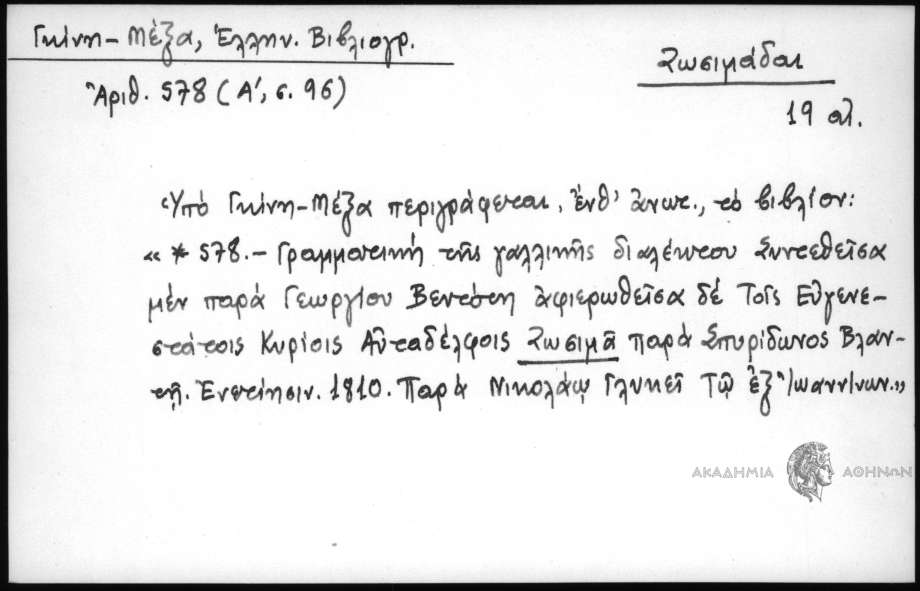 Γκίνη-Μέξα, Ἑλλην. Βιβλιογρ.
Ἀριθ. 578 (Α', σ. 96)
Ζωσιμάδαι
19 αἰ.
Ὑπό Γκίνη-Μέξα περιγράφεται, ἔνθ' ἀνωτ., τό βιβλίον:
« * 578. - Γραμματική τῆς γαλλικῆς διαλέκτου Συντεθεῖσα
μέν παρά Γεωργίου Βεντότη ἀφιερωθεῖσα δέ Τοῖς Εὐγενε-
στάτοις Κυρίοις Αὐταδέλφοις Ζωσιμᾶ παρά Σπυρίδωνος Βλαν-
τῆ. Ἐνετίησιν. 1810. Παρά Νικολάῳ Γλυκεῖ Τῷ ἐξ Ἰωαννίνων.»
ΑΚΑΔΗΜΙΑ ΑΘΗΝΩΝ